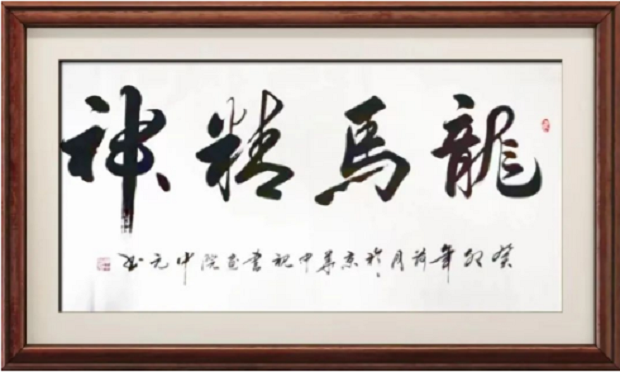 龍馬精神
癸卯年荷月於京華中視書畫院中元書